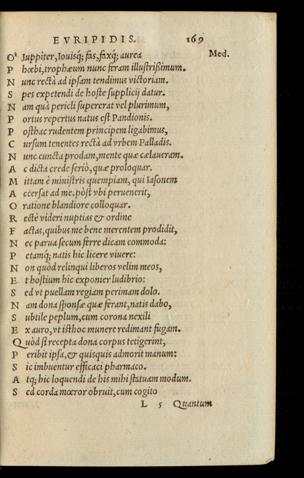 EVRIPIDIS. 169
O Iuppiter, Iouisq́; fas, faxq́; aurea Med.
P hœbi, trophæum nunc feram illustrißimum.
N unc rectà ad ipsam tendimus victoriam.
S pes expetendi de hoste supplicij datur.
N am quà pericli supererat vel plurimum,
P ortus repertus natus est Pandionis.
P osthac rudentem principem ligabimus,
C ursum tenentes rectà ad vrbem Palladis.
N unc cuncta prodam, mente quæ cælaueram.
A c dicta crede seriò, quæ proloquar.
M ittam è ministris quempiam, qui Iasonem
A ccersat ad me. pòst vbi peruenerit,
O ratione blandiore colloquar.
R ectè videri nuptias & ordine
F actas, quibus me bene merentem prodidit,
N ec parua secum ferre dicam commoda:
P etamq́; natis hic licere viuere:
N on quòd relinqui liberos velim meos,
E t hostium hic exponier ludibrio:
S ed vt puellam regiam perimam dolo.
N am dona sponsæ quæ ferant, natis dabo,
S ubtile peplum, cum corona nexili
E x auro, vt isthoc munere redimant fugam.
Q uòd si recepta dona corpus tetigerint,
P eribit ipsa, & quisquis admorit manum:
S ic imbuentur efficaci pharmaco.
A tq; hic loquendi de his mihi statuam modum.
S ed corda mœror obruit, cum cogito
L 5 Quantum